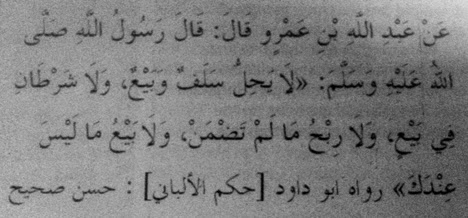 عَنْ عَبْدِ اللَّهِ بْنِ عَمْرٍو قَالَ: قَالَ رَسُولُ اللَّهِ صَلَّى
اللهُ عَلَيْهِ وَسَلَّمَ: «لَا يَحِلُّ سَلَفٌ وَبَيْعٌ، وَلَا شَرْطَانِ
فِي بَيْعٍ، وَلَا رِبْحُ مَا لَمْ تَضْمَنْ، وَلَا بَيْعُ مَا لَيْسَ
عِنْدَكَ» رواه ابو داود [حكم الألباني] : حسن صحيح